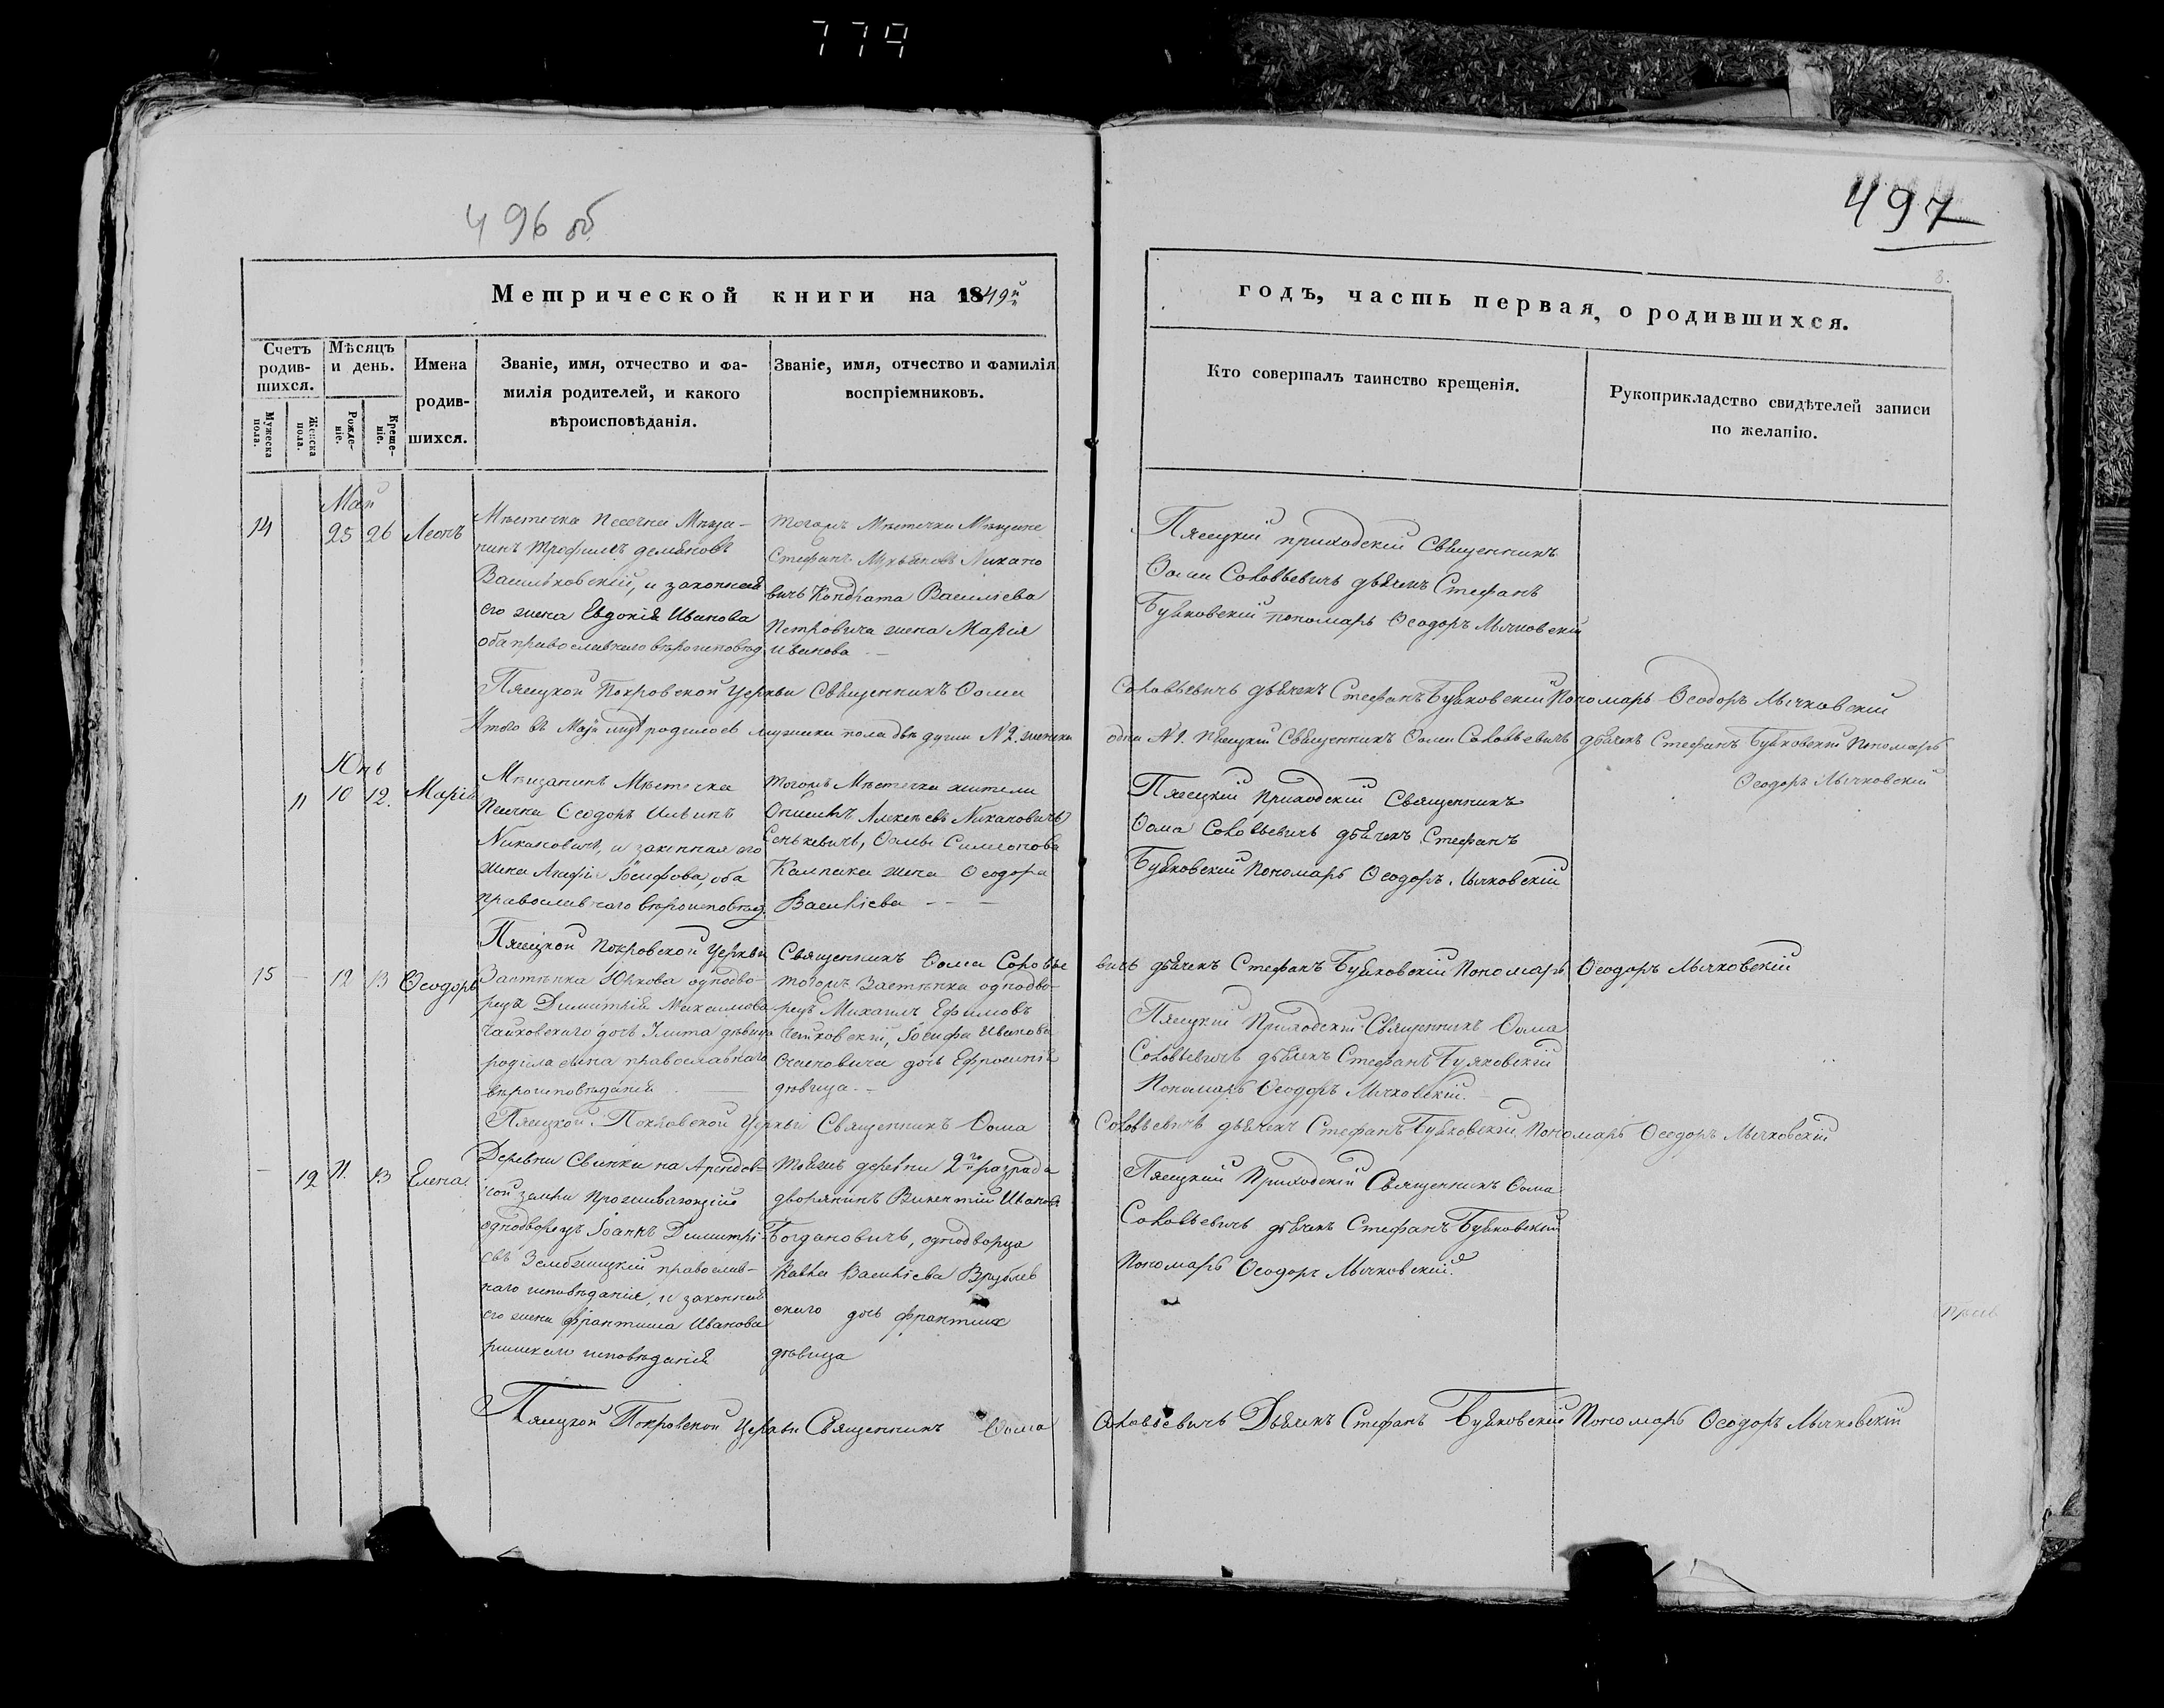 779
496 об
497
8.
Метрической книги на 1849й
годъ, часть первая, о родившихся.
Счетъ родив-
шихся.
Мужеска пола.
Женска пола.
Мѣсяцъ и день.
Рожде-
ніе.
Креще-
ніе.
Имена
родив-
шихся.
Званіе, имя, отчество и фа-
милія родителей, и какого
вѣроисповѣданія.
Званіе, имя, отчество и фамилія
воспріемниковъ.
Кто совершалъ таинство крещенія.
Рукоприкладство свидѣтелей записи
по желанію.
Май
14 25 26 Леонъ
Мѣстечка Песечна Мѣща-
нинъ Трофимъ Демьяновъ
Васильковскій, и законная
его жена Евдокія Иванова
оба православнаго вѣроисповѣд
тогожъ Мѣстечка Мѣщане
Стефанъ Никано
вичъ Кондрата Василіева
Петровича жена Марія
Иванова
Пясецкій приходскій Священникъ
Ѳома Соловьевичъ дьячекъ Стефанъ
Буяковскій пономарь Ѳеодоръ Мычковскій
Пясецкой Покровской Церкви Священникъ Ѳома
Соловьевичъ дьячекъ Стефанъ Буяковскій Пономарь Ѳеодоръ Мычковскій
Итого въ Маѣ родилось мужеска пола двѣ души № 2. женска
одна № 1. Пясецкій Священникъ Ѳома Соловьевичъ дьячекъ Стефанъ Буяковскій Пономарь
Ѳеодоръ Мычковскій
Юнь
11 10 12. Марія
Мѣщанинъ Мѣстечка
Песечна Ѳеодоръ Ильинъ
Никановичъ, и законная его
жена Агафія Іосифова, оба
православнаго вѣроисповѣд.
тогожъ Мѣстечка жители
Онисимъ Алексѣевъ Никановичъ
Сенькевичъ, Ѳомы Симеонова
Калпака жена Ѳеодора
Василіева
Пясецкій Приходскій Священникъ
Ѳома Соловьевичъ дьячекъ Стефанъ
Буяковскій Пономарь Ѳеодоръ Мычковскій
Пясецкой Покровской Церкви Священникъ Ѳома Соловье
вичъ дьячекъ Стефанъ Буяковскій Пономарь Ѳеодоръ Мычковскій
15 12 13 Ѳеодоръ
Застѣнка Юркова однодво-
рца Димитрія Максимова
Чайковскаго дочь дѣвица
родила сына православнаго
вѣроисповѣданія
тогожъ Застѣнка однодво-
рецъ Михаилъ Ефимовъ
Чайковскій, Іосифа Иванова
дочь Ефросинія
дѣвица.
Пясецкій Приходскій Священникъ Ѳома
Соловьевичъ дьячекъ Стефанъ Буяковскій
Пономарь Ѳеодоръ Мычковскій.
Пясецкой Покровской Церкви Священникъ Ѳома
Соловьевичъ дьячекъ Стефанъ Буяковскій Пономарь Ѳеодоръ Мычковскій
12 11. 13 Елена.
Деревни Свинки на Арендов-
ной земли проживающій
однодворецъ Іоаннъ Димитрі-
евъ православ-
наго исповѣданія, и законная
его жена Франтишка Иванова
римскаго исповѣданія
тояжъ деревни 2го разряда
дворянинъ Викентій Ивановъ
Богдановичъ, однодворца
Павла Василіева Врублев
скаго дочь
дѣвица
Пясецкій Приходскій Священникъ Ѳома
Соловьевичъ дьячекъ Стефанъ Буяковскій
Пономарь Ѳеодоръ Мычковскій.
Пясецкой Покровской Церкви Священникъ Ѳома
Соловьевичъ Дьячекъ Стефанъ Буяковскій Пономарь Ѳеодоръ Мычковскій